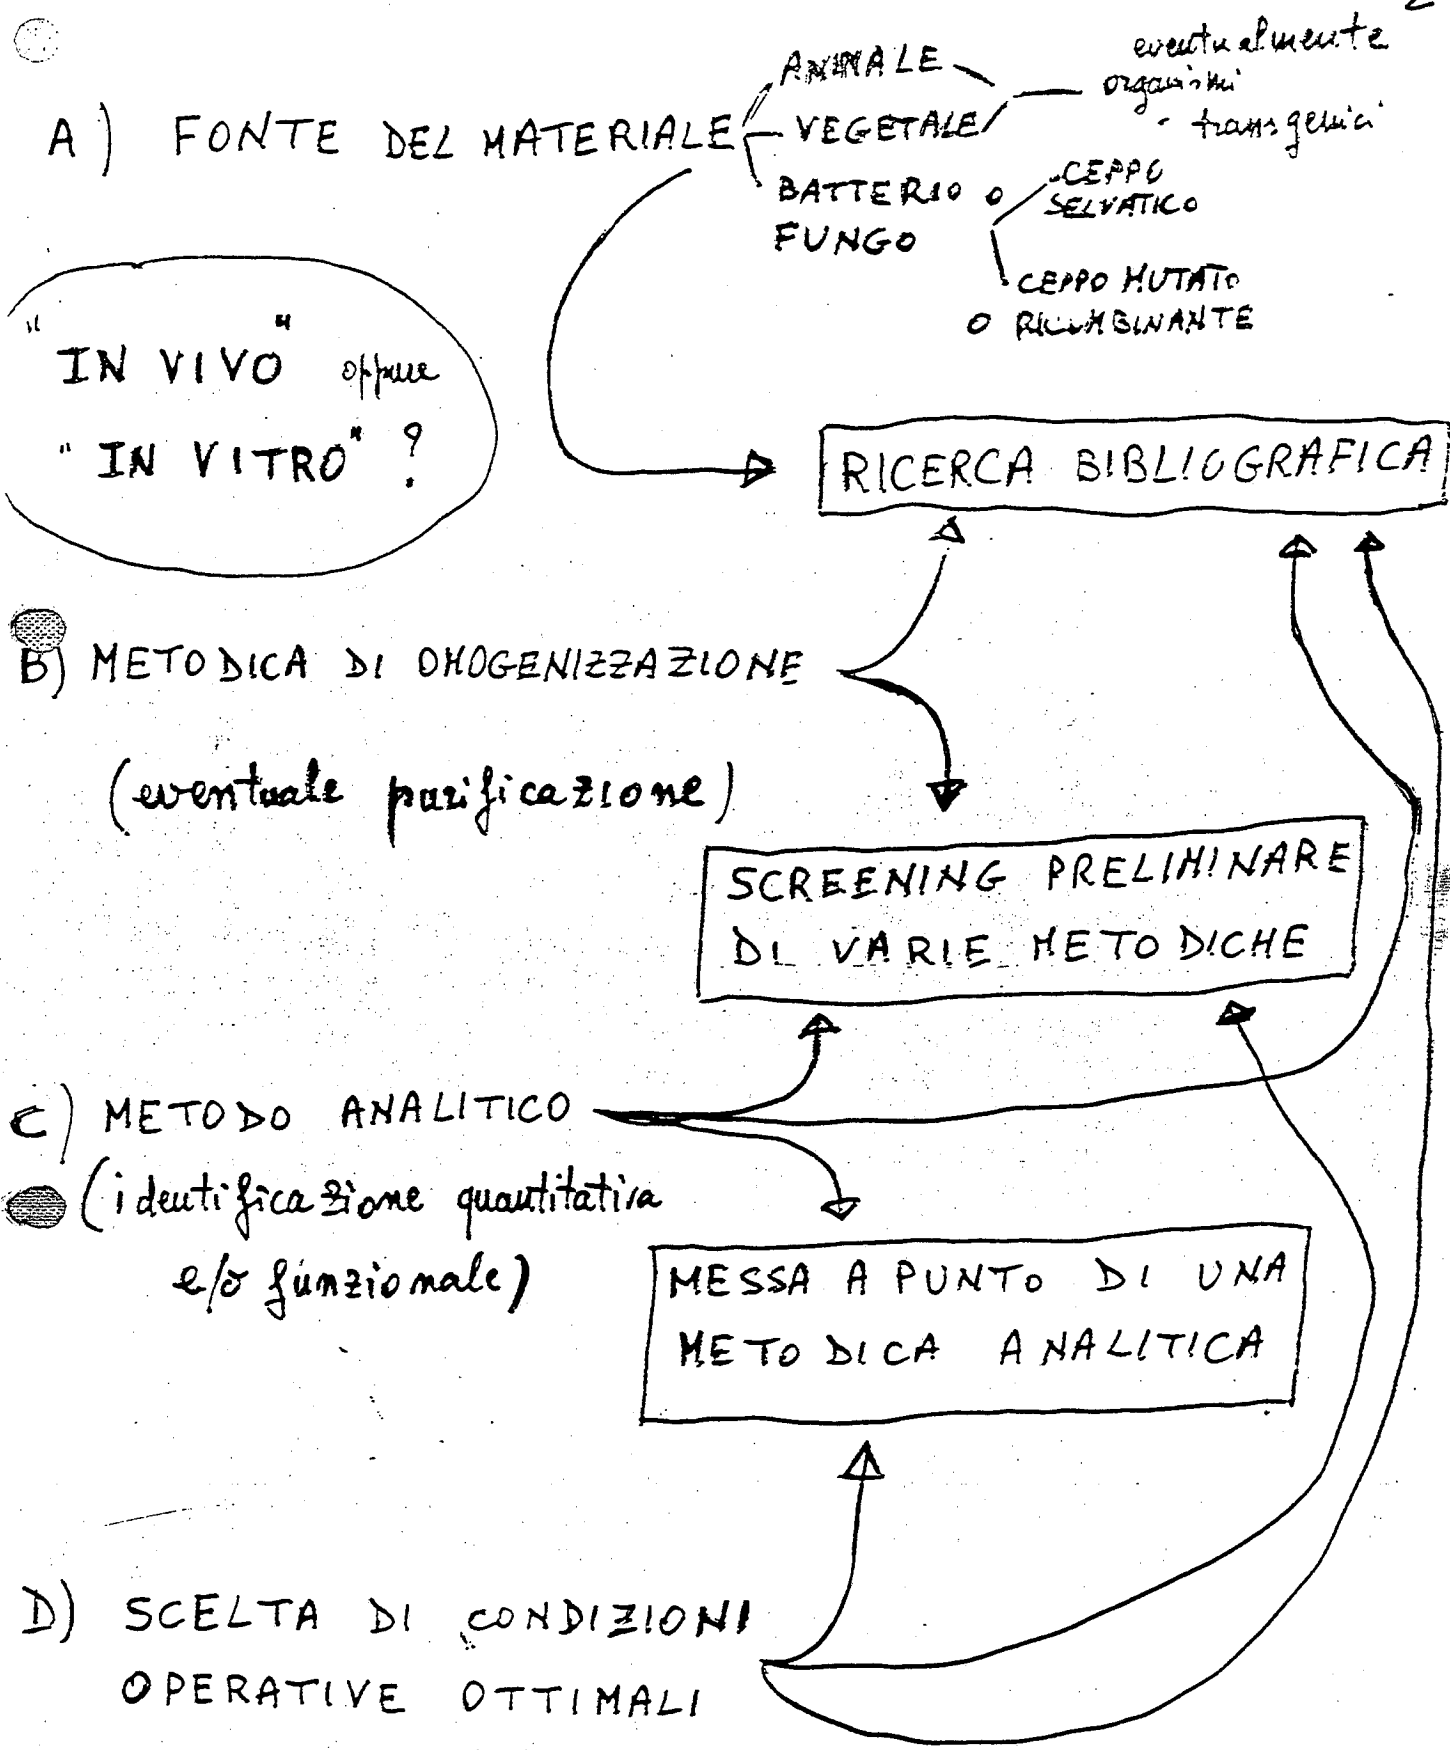 2
A) FONTE DEL MATERIALE
ANIMALE
VEGETALE
BATTERIO O
FUNGO
eventualmente
organismi
transgenici
CEPPO
SELVATICO
CEPPO MUTATO
O RICOMBINANTE
"IN VIVO" oppure
"IN VITRO" ?
RICERCA BIBLIOGRAFICA
B) METODICA DI OMOGENIZZAZIONE
(eventuale purificazione)
SCREENING PRELIMINARE
DI VARIE METODICHE
C) METODO ANALITICO
(identificazione quantitativa
e/o funzionale)
MESSA A PUNTO DI UNA
METODICA ANALITICA
D) SCELTA DI CONDIZIONI
OPERATIVE OTTIMALI